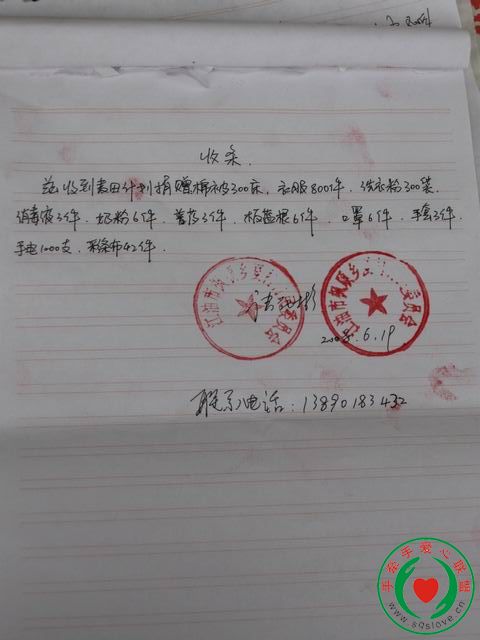 收条.
兹收到麦田计划捐赠棉被300床、衣服800件、洗衣粉300袋、
消毒液3件、奶粉6件、姜片3件、板蓝根6件、口罩6件、手套3件、
手电1000支、彩条布42件.
江油市 乡 委员会
江油市 乡 委员会
2008.6.19
联系电话:13890183432
手牵手爱心联盟
www.sqslove.cn